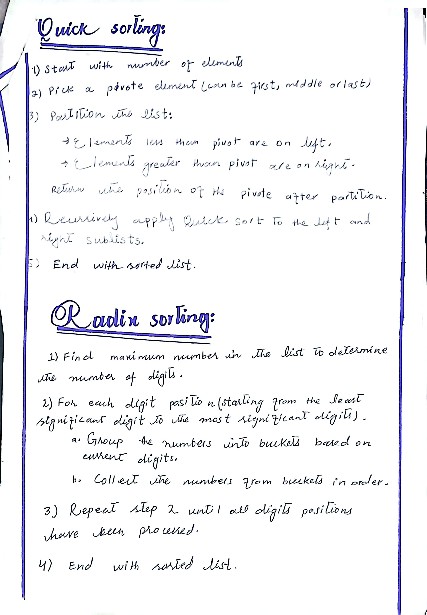 Quick sorting:
1) Start with number of elements
2) Pick a pivote element (can be first, middle or last)
3) Partition the list:
→ Elements less than pivot are on left.
→ Elements greater than pivot are on right.
Return the position of the pivote after partition.
4) Recursively apply Quick sort to the left and
right sublists.
5) End with sorted list.
Radix sorting:
1) Find maximum number in the list to determine
the number of digits.
2) For each digit position (starting from the least
significant digit to the most significant digits).
a. Group the numbers into buckets based on
current digits.
b. Collect the numbers from buckets in order.
3) Repeat step 2 until all digits positions
have been processed.
4) End with sorted list.